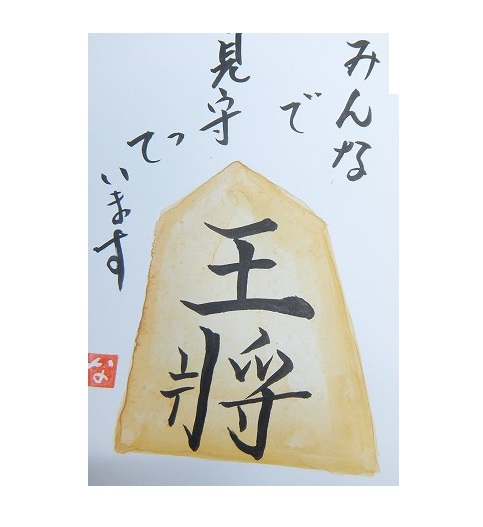 みんな
で
見守
てっ
います
王将
な